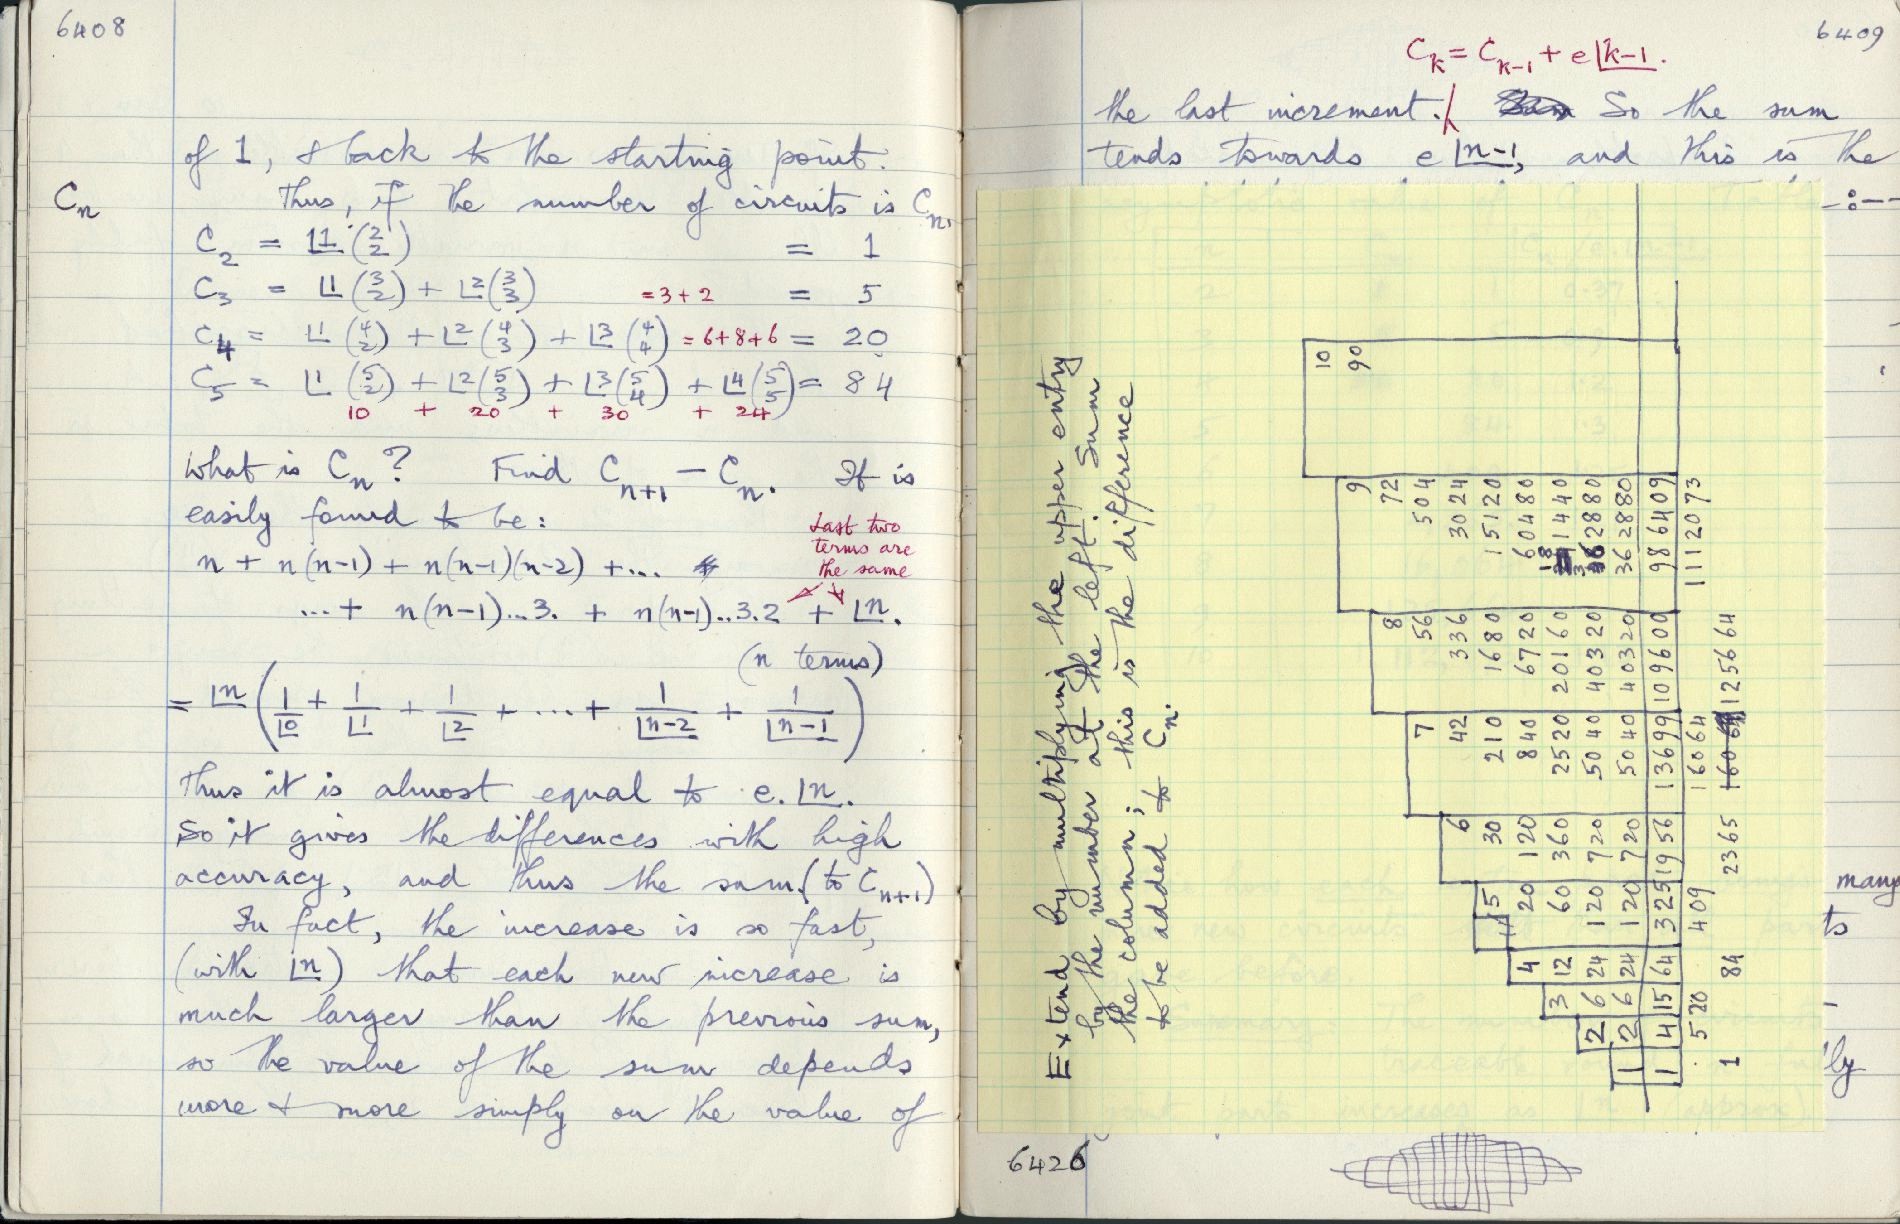 6408
of 1, & back to the starting point.
Thus, if the number of circuits is Cₙ,
Cₙ
C₂ = ⌊1 (2 2) = 1
C₃ = ⌊1 (3 2) + ⌊2 (3 3) = 3 + 2 = 5
C₄ = ⌊1 (4 2) + ⌊2 (4 3) + ⌊3 (4 4) = 6+8+6 = 20
C₅ = ⌊1 (5 2) + ⌊2 (5 3) + ⌊3 (5 4) + ⌊4 (5 5) = 84
10 + 20 + 30 + 24
What is Cₙ? Find Cₙ₊₁ − Cₙ. It is
easily found to be:
Last two
terms are
the same
n + n(n−1) + n(n−1)(n−2) + ...
... + n(n−1)...3. + n(n−1)..3.2 + ⌊n.
(n terms)
= ⌊n (1/⌊0 + 1/⌊1 + 1/⌊2 + ... + 1/⌊n−2 + 1/⌊n−1)
Thus it is almost equal to e.⌊n.
So it gives the differences with high
accuracy, and thus the sum (to Cₙ₊₁)
In fact, the increase is so fast,
(with ⌊n) that each new increase is
much larger than the previous sum,
so the value of the sum depends
more & more simply on the value of
6409
Cₖ = Cₖ₋₁ + e⌊k−1.
the last increment. So the sum
tends towards e⌊n−1, and this is the
Extend by multiplying the upper entry
by the number at the left. Sum
the column; this is the difference
to be added to Cₙ.
1 2 3 4 5 6 7 8 9 10
2 6 12 20 30 42 56 72 90
6 24 60 120 210 336 504
24 120 360 840 1680 3024
120 720 2520 6720 15120
720 5040 20160 60480
5040 40320 181440
40320 362880
362880
1 4 15 64 325 1956 13699 109600 986409
1 5 20 84 409 2365 16064 125664 1112073
many
ts
ly
6426